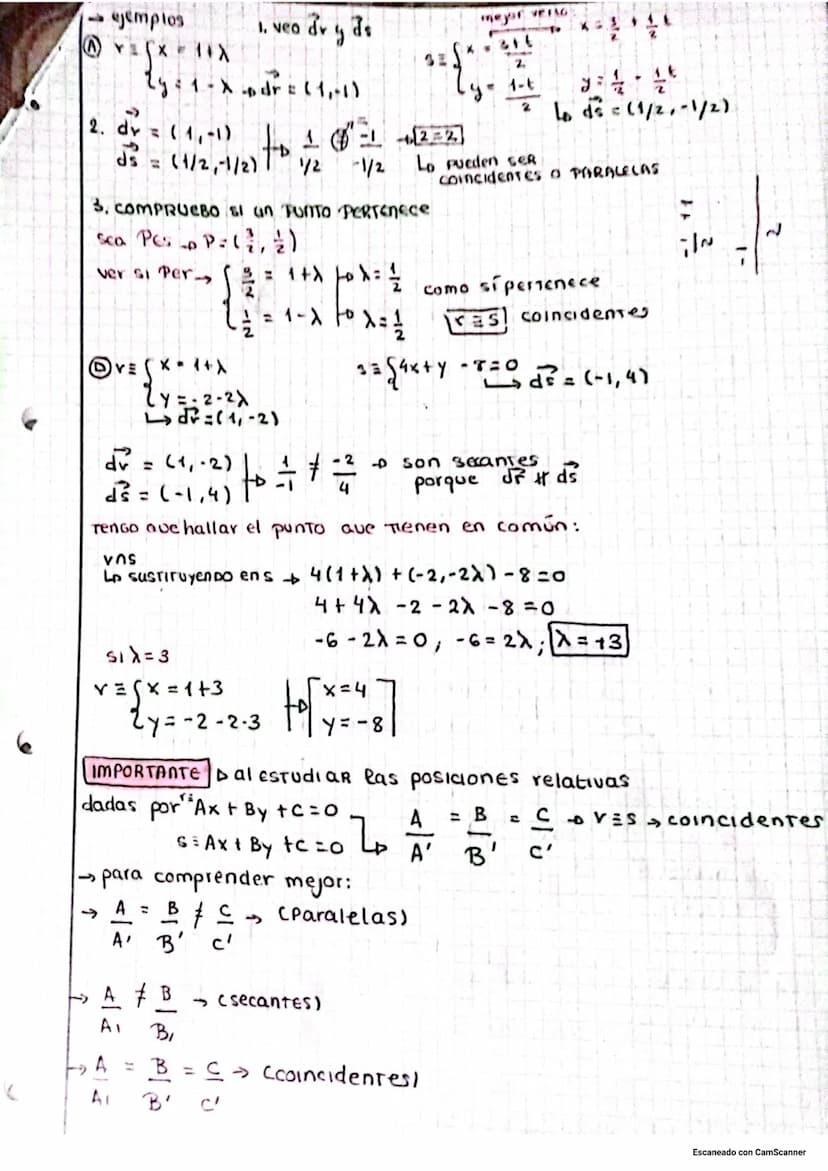 → ejemplos 1. veo dr y ds mejor verlo: x = 3/2 + 1/2 t
Ⓐ r ≡ { x = 1+λ s ≡ { x = 3+t/2
y = 1 - λ → dr = (1,-1) y = 1-t/2 y = 1/2 - 1/2 t
↳ ds = (1/2, -1/2)
2. dr = (1,-1) 1/1/2 "=" -1/-1/2 → 2=2
ds = (1/2,-1/2) ↳ pueden ser
coincidentes o PARALELAS
3. COMPRUEBO SI UN PUNTO PERTENECE
sea P∈s → P=(3/2, 1/2)
ver si P∈r → { 3/2 = 1+λ → λ = 1/2 como sí pertenece
1/2 = 1-λ → λ = 1/2 r ≡ s coincidentes
Ⓓ r ≡ { x = 1+λ s ≡ { 4x+y - 8=0
y = -2-2λ ↳ ds = (-1,4)
↳ dr = (1,-2)
dr = (1,-2) 1/-1 ≠ -2/4 → son secantes
ds = (-1,4) porque dr ∦ ds
TENGO que hallar el punto que tienen en común:
rns
↳ sustituyendo en s → 4(1+λ) + (-2,-2λ) - 8 = 0
4 + 4λ - 2 - 2λ - 8 = 0
-6 - 2λ = 0, -6 = 2λ; λ = +3
si λ = 3
r ≡ { x = 1+3 x = 4
y = -2 -2·3 y = -8
IMPORTANTE al ESTUDIAR las posiciones relativas
dadas por r: Ax + By + C = 0 A/A' = B/B' = C/C' → r ≡ s → coincidentes
s ≡ Ax + By + C = 0
→ para comprender mejor:
→ A/A' = B/B' ≠ C/C' → (Paralelas)
→ A/A' ≠ B/B' → (secantes)
→ A/A' = B/B' = C/C' → (coincidentes)
Escaneado con CamScanner